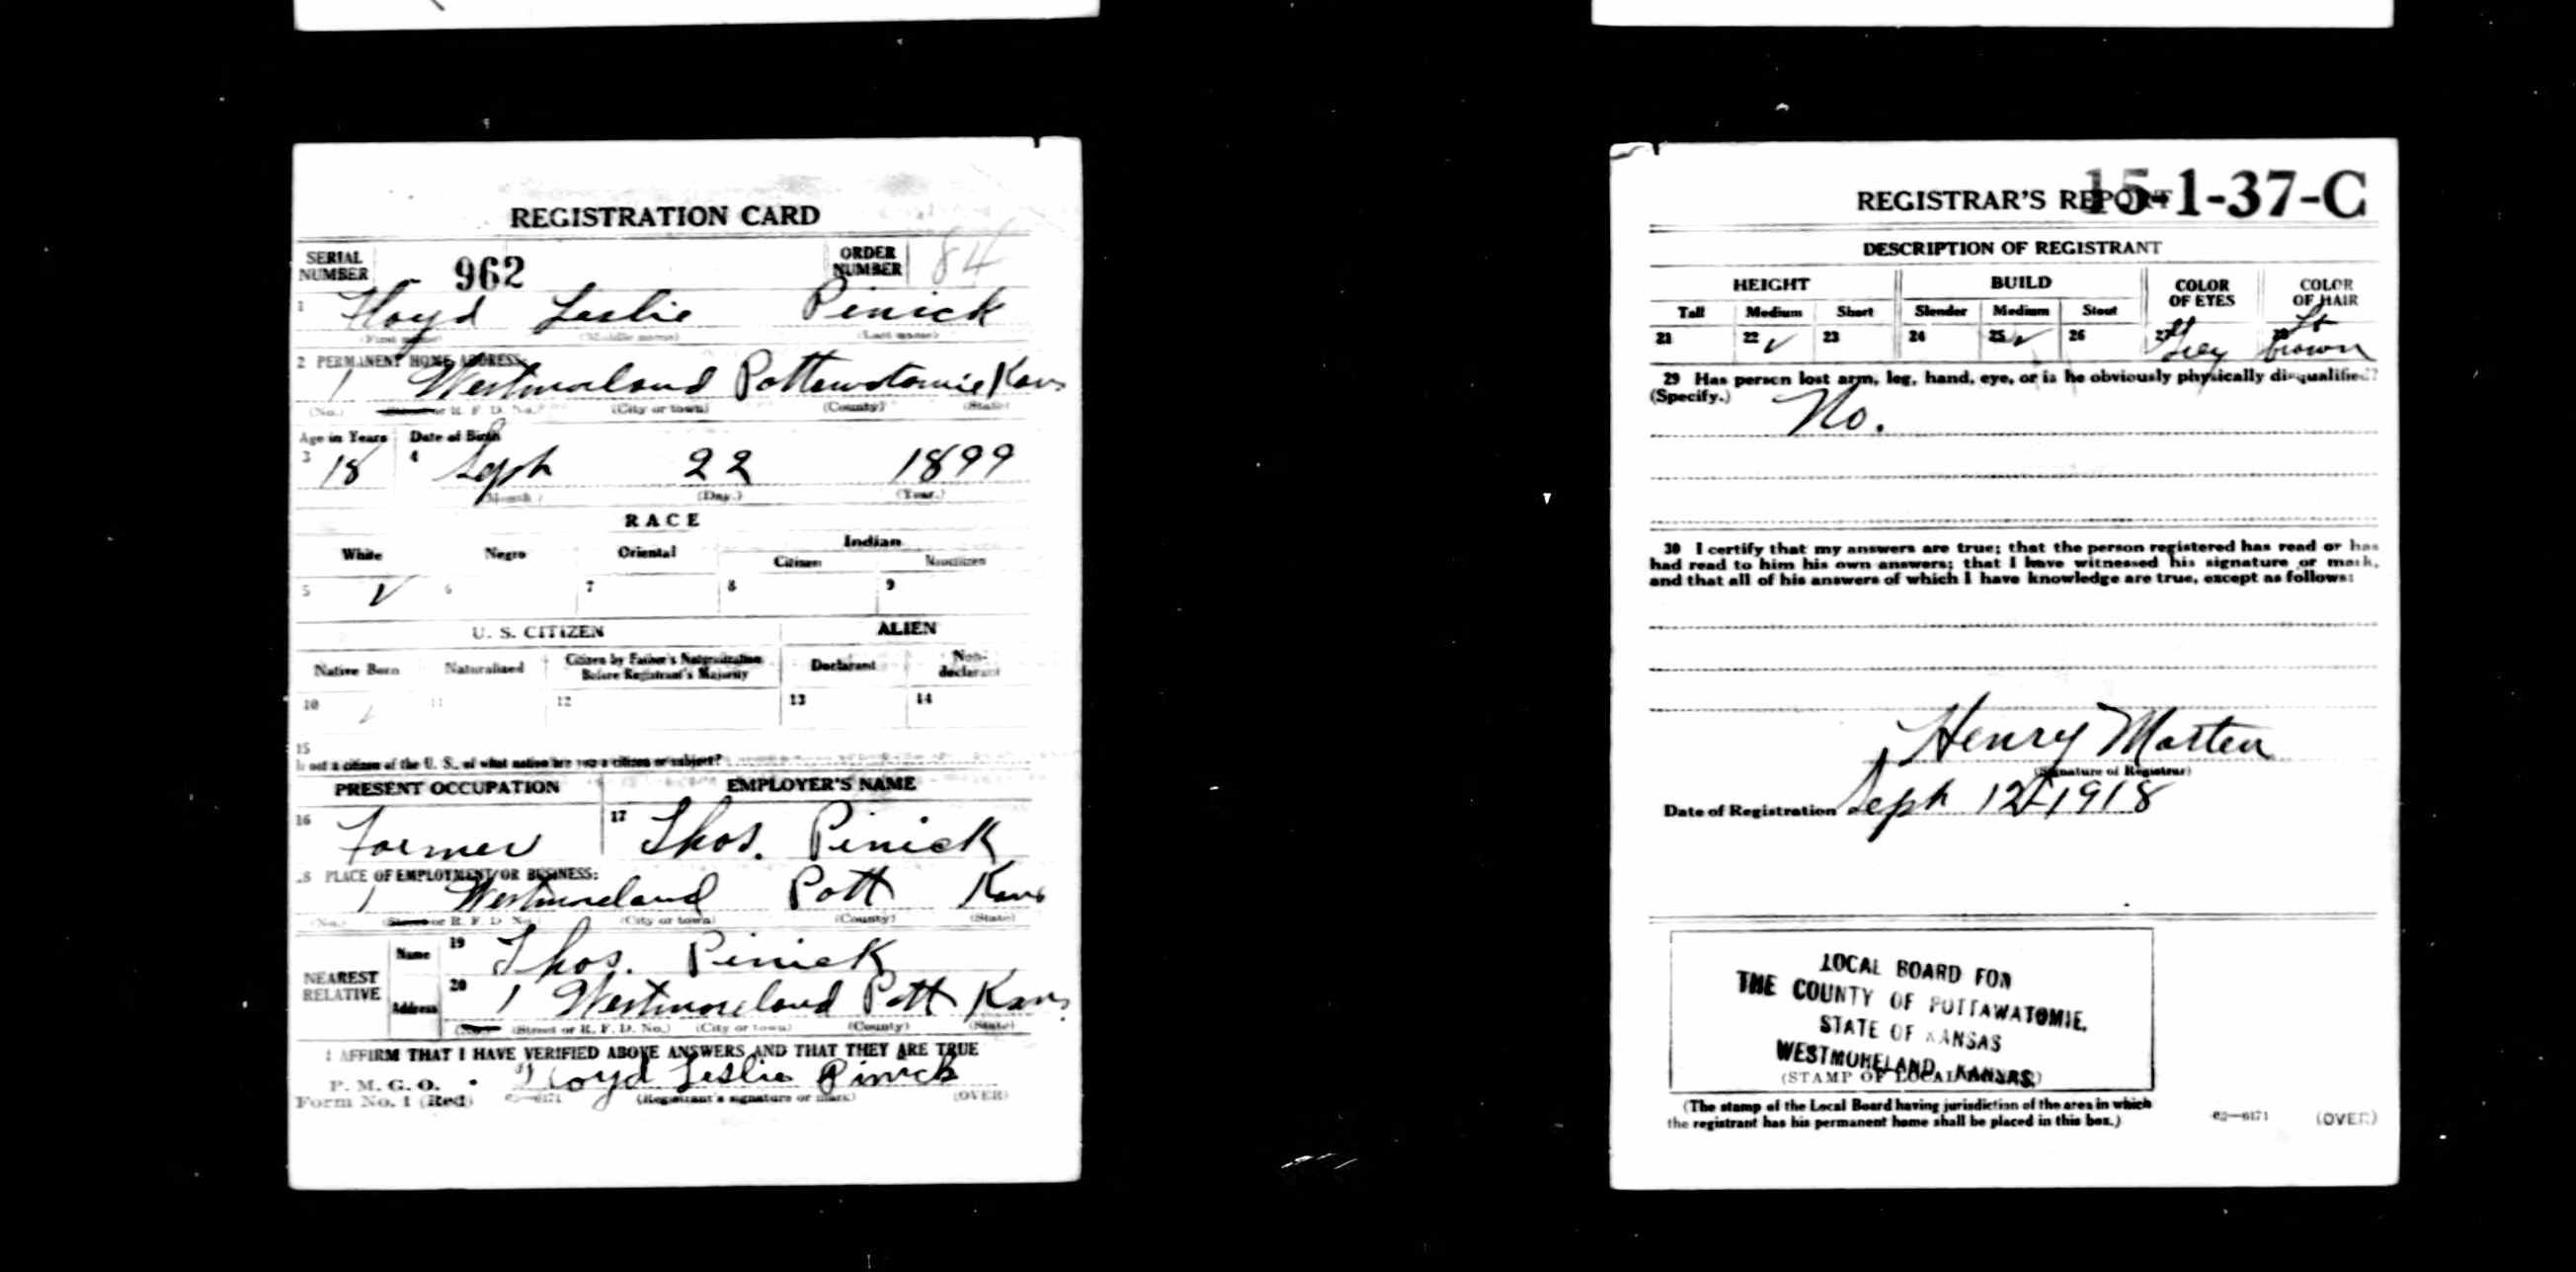 REGISTRATION CARD
SERIAL NUMBER 962 ORDER NUMBER 84
1 Floyd Leslie Pinick
(First name) (Middle name) (Last name)
2 PERMANENT HOME ADDRESS:
1 Westmoreland Pottawatomie Kans
(No.) (Street or R. F. D. No.) (City or town) (County) (State)
Age in Years Date of Birth
3 18 4 Sept 22 1899
(Month.) (Day.) (Year.)
RACE
White Negro Oriental Indian
Citizen Noncitizen
5 ✓ 6 7 8 9
U. S. CITIZEN ALIEN
Native Born Naturalized Citizen by Father's Naturalization Before Registrant's Majority Declarant Non-declarant
10 ✓ 11 12 13 14
15
If not a citizen of the U. S., of what nation are you a citizen or subject?
PRESENT OCCUPATION EMPLOYER'S NAME
16 Farmer 17 Thos. Pinick
18 PLACE OF EMPLOYMENT OR BUSINESS:
1 Westmoreland Pott Kans
(No.) (Street or R. F. D. No.) (City or town) (County) (State)
NEAREST RELATIVE Name 19 Thos. Pinick
Address 20 1 Westmoreland Pott Kans
(No.) (Street or R. F. D. No.) (City or town) (County) (State)
I AFFIRM THAT I HAVE VERIFIED ABOVE ANSWERS AND THAT THEY ARE TRUE
P. M. G. O. Floyd Leslie Pinick
Form No. 1 (Red) (Registrant's signature or mark) (OVER)
REGISTRAR'S REPORT 15-1-37-C
DESCRIPTION OF REGISTRANT
HEIGHT BUILD COLOR OF EYES COLOR OF HAIR
Tall Medium Short Slender Medium Stout
21 22 ✓ 23 24 25 ✓ 26 27 Lt Grey 28 Lt brown
29 Has person lost arm, leg, hand, eye, or is he obviously physically disqualified?
(Specify.) No.
30 I certify that my answers are true; that the person registered has read or has
had read to him his own answers; that I have witnessed his signature or mark,
and that all of his answers of which I have knowledge are true, except as follows:
Henry Marten
(Signature of Registrar)
Date of Registration Sept 12-1918
LOCAL BOARD FOR
THE COUNTY OF POTTAWATOMIE,
STATE OF KANSAS
WESTMORELAND, KANSAS.
(STAMP OF LOCAL BOARD)
(The stamp of the Local Board having jurisdiction of the area in which
the registrant has his permanent home shall be placed in this box.)
(OVER)